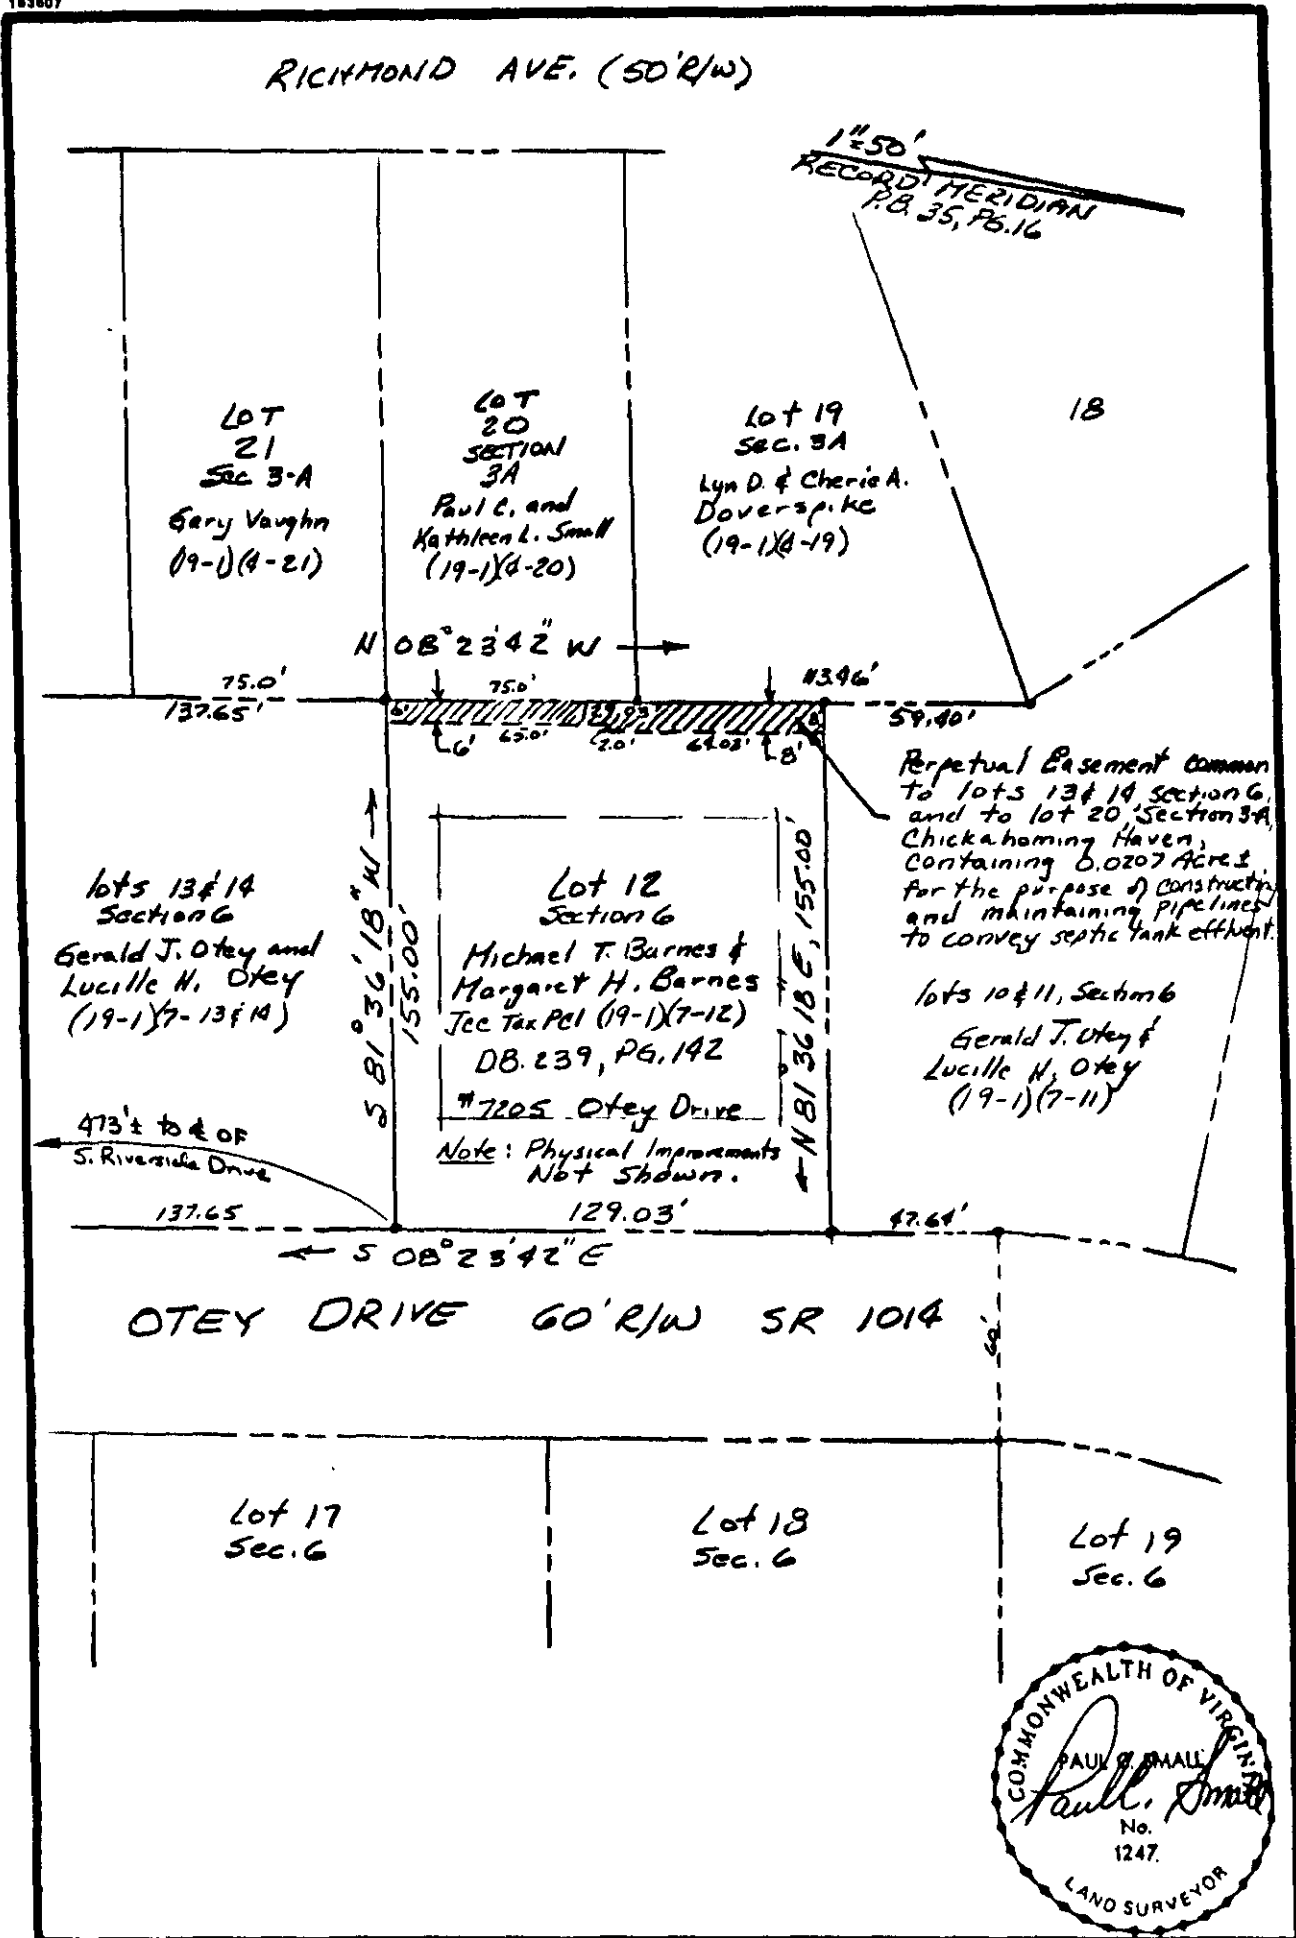 163607
RICHMOND AVE. (50' R/W)
1"=50'
RECORD MERIDIAN
P.B. 35, PG. 16
LOT
21
Sec 3-A
Gary Vaughn
(19-1)(4-21)
LOT
20
SECTION
3A
Paul C. and
Kathleen L. Small
(19-1)(4-20)
Lot 19
Sec. 3A
Lyn D. & Cherie A.
Doverspike
(19-1)(4-19)
18
N 08° 23' 42" W
75.0'
137.65'
75.0'
113.46'
59.40'
6'
8'
6'
65.0'
2.0'
64.03'
8'
Perpetual Easement common
to lots 13 & 14 section 6,
and to lot 20, Section 3-A,
Chickahominy Haven,
Containing 0.0207 Acre ±
for the purpose of constructing
and maintaining pipelines
to convey septic tank effluent.
lots 13 & 14
Section 6
Gerald J. Otey and
Lucille H. Otey
(19-1)(7-13 & 14)
S 81° 36' 18" W
155.00'
Lot 12
Section 6
Michael T. Barnes &
Margaret H. Barnes
JCC Tax Pcl (19-1)(7-12)
DB. 239, PG. 142
#7205 Otey Drive
Note: Physical Improvements
Not Shown.
N 81° 36' 18" E, 155.00'
lots 10 & 11, Section 6
Gerald J. Otey &
Lucille H. Otey
(19-1)(7-11)
473'± to ℄ OF
S. Riverside Drive
137.65
129.03'
47.64'
S 08° 23' 42" E
OTEY DRIVE 60' R/W SR 1014
60'
Lot 17
Sec. 6
Lot 18
Sec. 6
Lot 19
Sec. 6
COMMONWEALTH OF VIRGINIA
PAUL C. SMALL
Paul C. Small
No.
1247.
LAND SURVEYOR